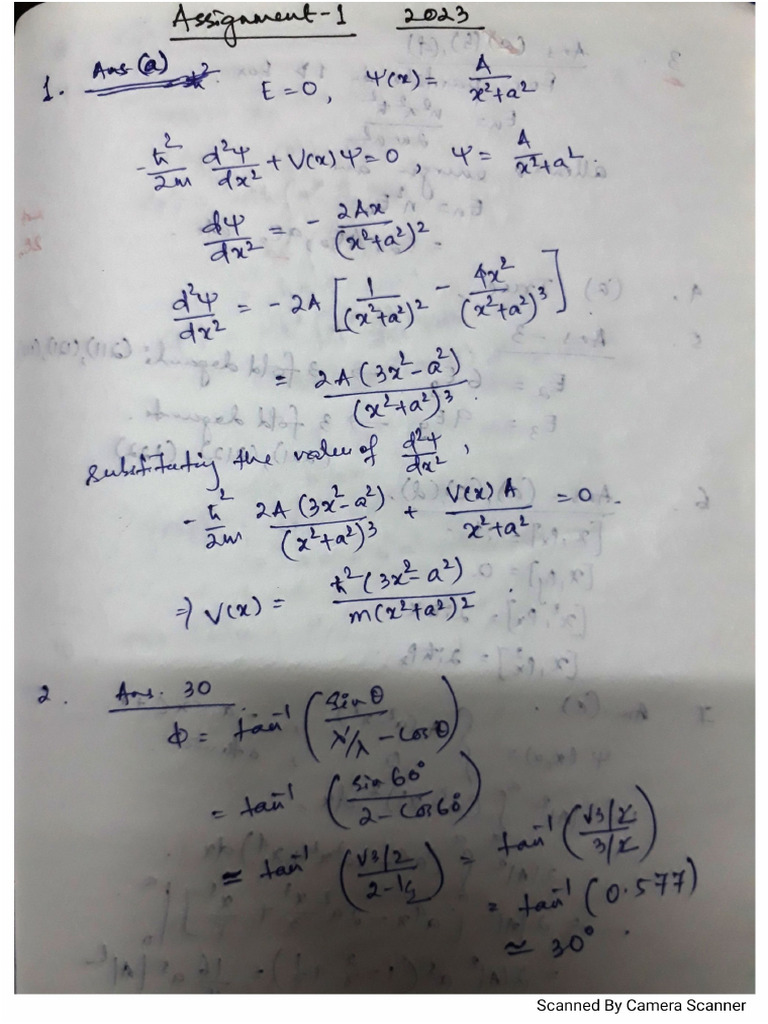 Assignment-1 2023
1. Ans (a)
E = 0, Ψ(x) = A/(x²+a²)
-ħ²/2m d²Ψ/dx² + V(x)Ψ = 0, Ψ = A/(x²+a²).
dΨ/dx² = - 2Ax/(x²+a²)².
d²Ψ/dx² = -2A [1/(x²+a²)² - 4x²/(x²+a²)³]
= 2A(3x²-a²)/(x²+a²)³.
Substituting the value of d²Ψ/dx²,
-ħ²/2m 2A(3x²-a²)/(x²+a²)³ + V(x)A/(x²+a²) = 0.
⇒ V(x) = ħ²(3x²-a²)/m(x²+a²)².
2. Ans. 30
Φ = tan⁻¹ (sinθ/(λ'/λ - cosθ))
= tan⁻¹ (sin60°/(2-cos60°))
≃ tan⁻¹ ((√3/2)/(2-½)) = tan⁻¹ ((√3/2)/(3/2))
= tan⁻¹ (0.577)
≃ 30°.
Scanned By Camera Scanner